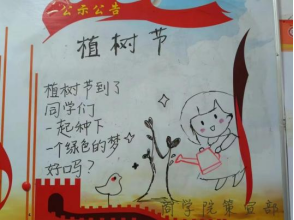 公示公告
植树节
植树节到了
同学们
一起种下
一个绿色的梦
好吗？
商学院宣传部